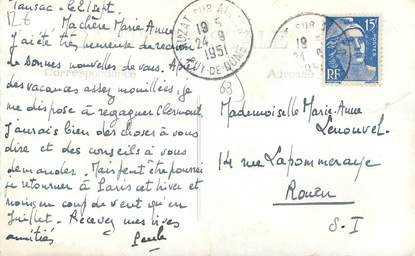 Tansac - le 21 sept.
Ma chère Marie-Anne
J'ai été très heureuse de recevoir
de bonnes nouvelles de vous. Après
des vacances assez mouillées, je
me dispose à regagner Clermont
J'aurais bien des choses à vous
dire et des conseils à vous
demander. Mais peut être pourrai
je retourner à Paris cet hiver et
en coup de vent qu'en
Juillet. Recevez mes vives
amitiés Paule
Correspondance
AUZAT SUR ALLIER
19 5
24-9
1951
PUY-DE-DÔME
63
SUR
19 5
24 9
15F
POSTES
RF
Adresse
Mademoiselle Marie-Anne
Lenouvel
14 rue Lapommeraye
Rouen
S-I